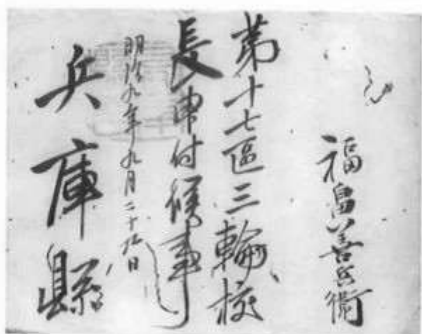 福島善兵衛
第十七區三輪校
長申付候事
明治九年九月二十九日
兵庫縣